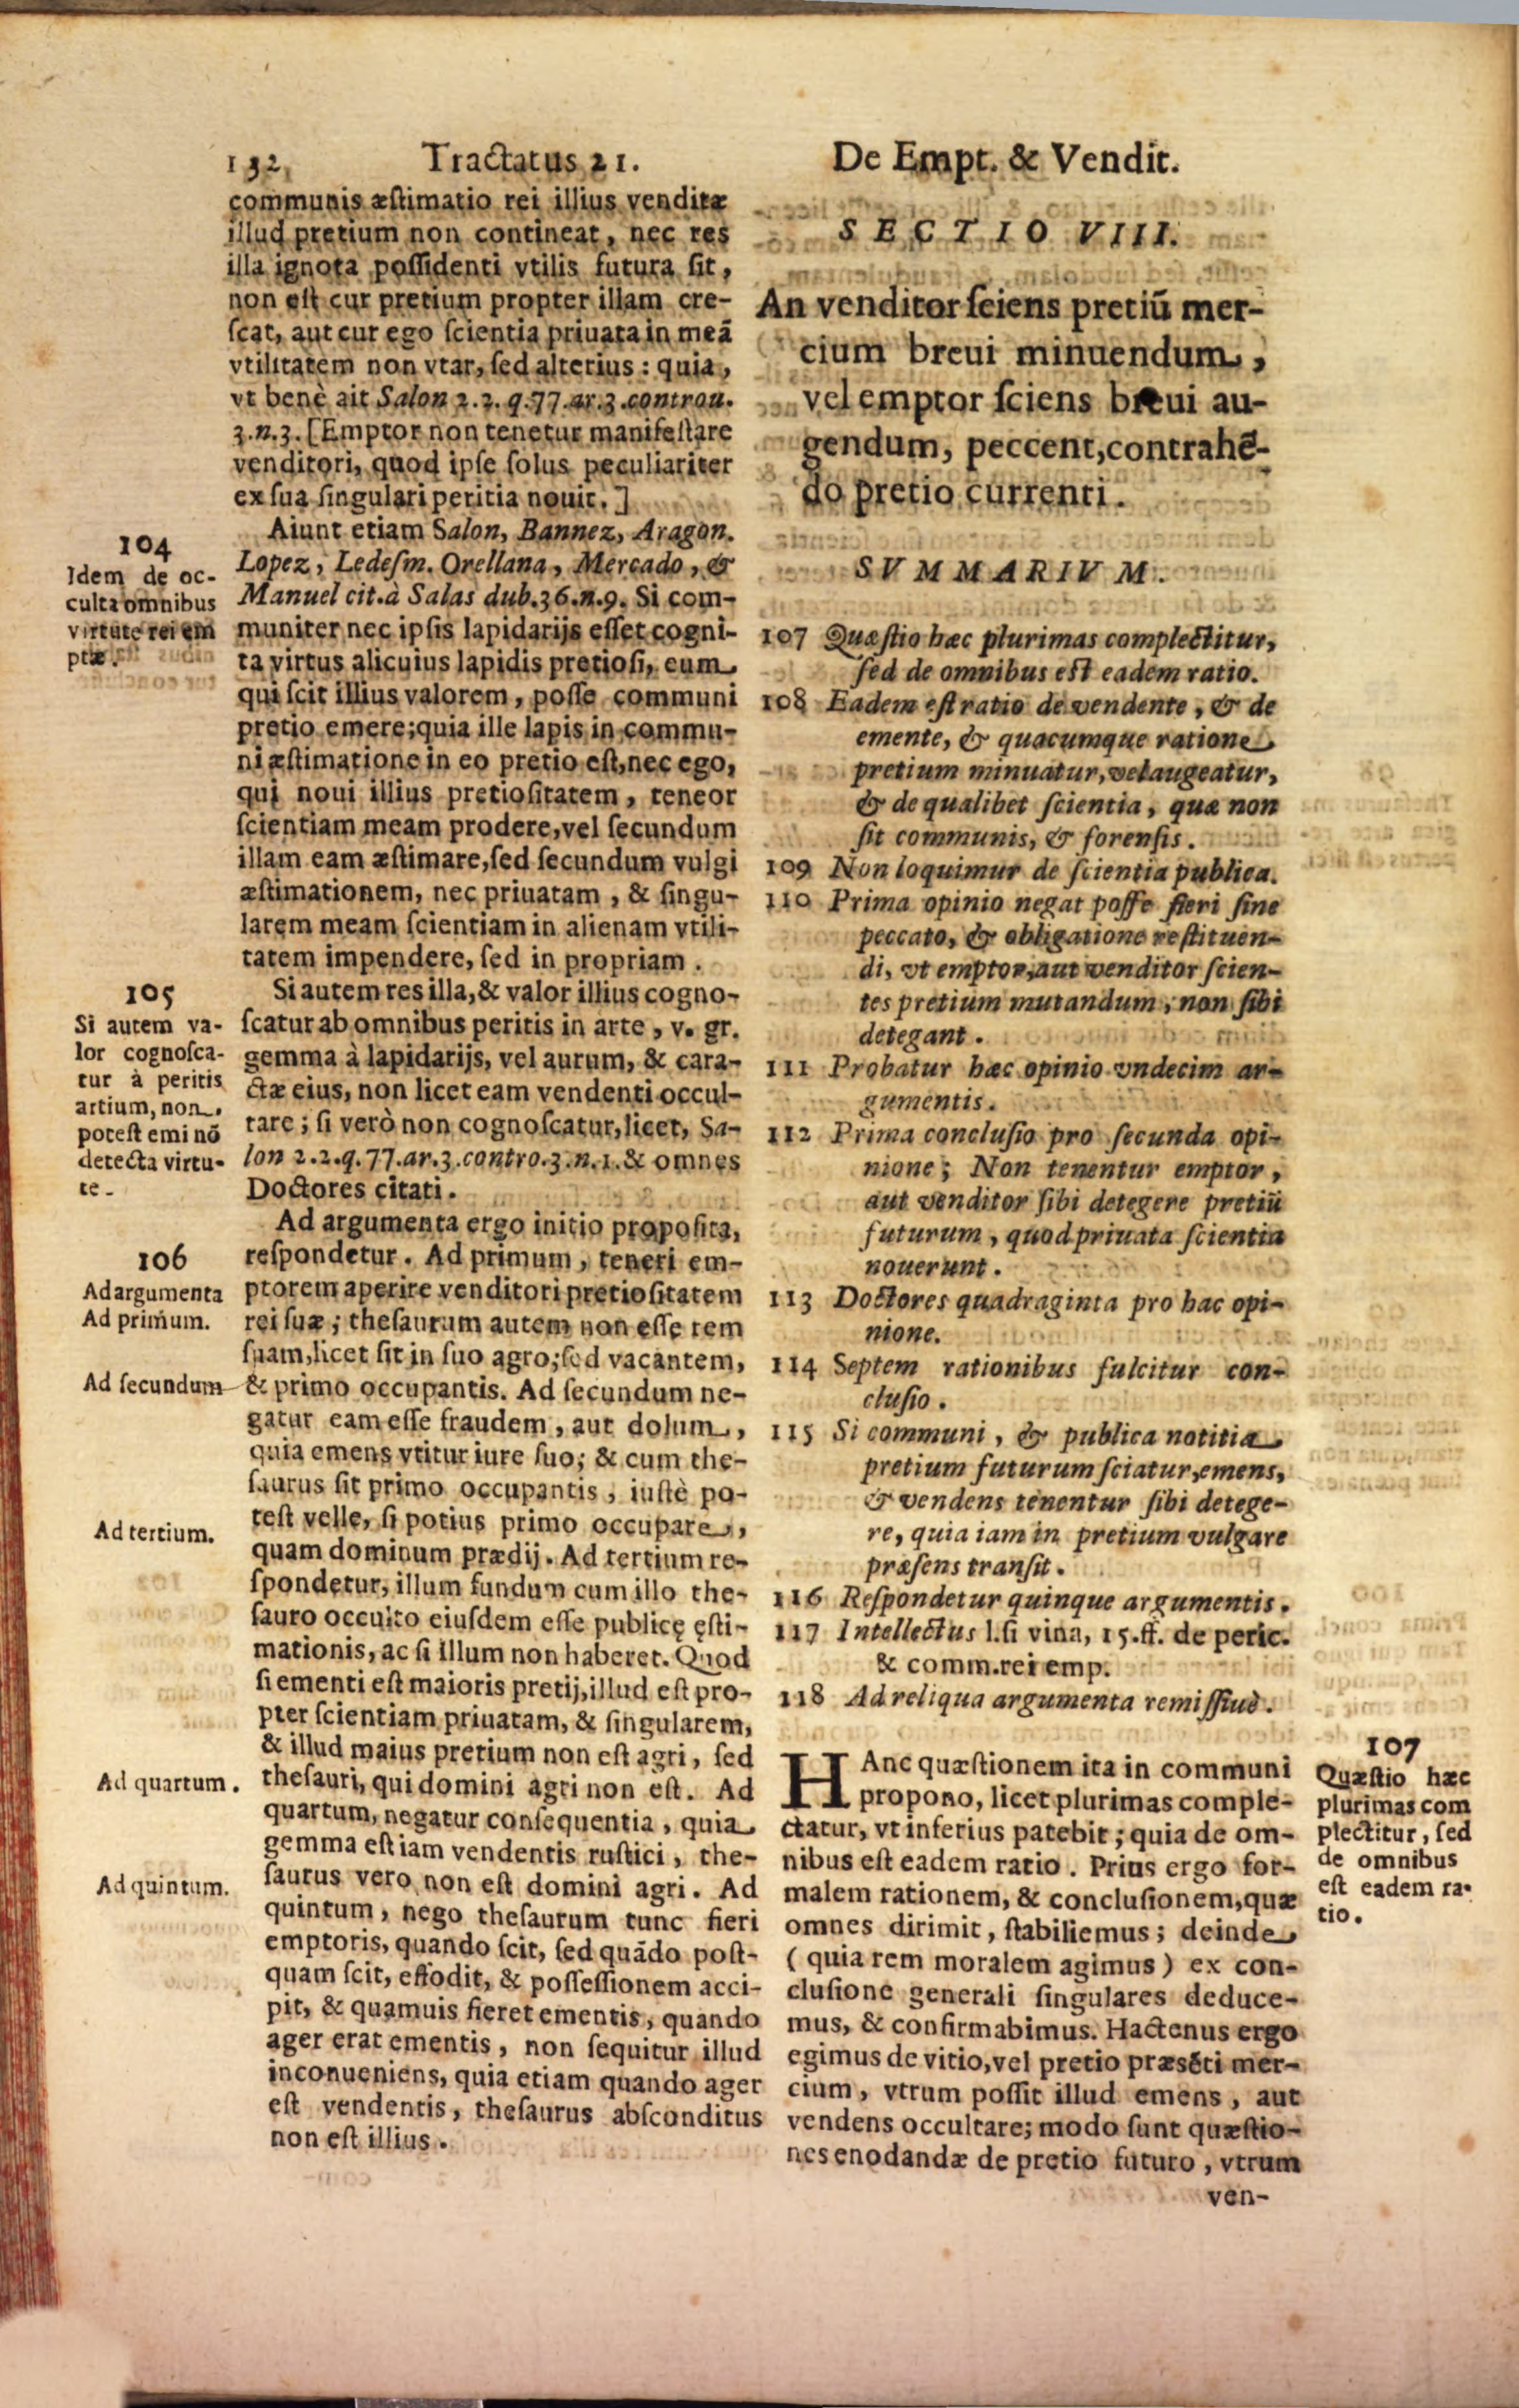 132 Tractatus 21. De Empt. & Vendit.
communis æſtimatio rei illius venditæ
illud pretium non contineat, nec res
illa ignota poſſidenti vtilis futura ſit,
non eſt cur pretium propter illam cre-
ſcat, aut cur ego ſcientia priuata in meā
vtilitatem non vtar, ſed alterius: quia,
vt benè ait Salon 2.2. q.77.ar.3.controu.
3.n.3. [Emptor non tenetur manifeſtare
venditori, quod ipſe ſolus peculiariter
ex ſua ſingulari peritia nouit.]
104
Idem de oc-
culta omnibus
virtute rei em
ptæ.
Aiunt etiam Salon, Bannez, Aragon.
Lopez, Ledeſm. Orellana, Mercado, &
Manuel cit.à Salas dub.36.n.9. Si com-
muniter nec ipſis lapidarijs eſſet cogni-
ta virtus alicuius lapidis pretioſi, eum
qui ſcit illius valorem, poſſe communi
pretio emere; quia ille lapis in commu-
ni æſtimatione in eo pretio eſt, nec ego,
qui noui illius pretioſitatem, teneor
ſcientiam meam prodere, vel ſecundum
illam eam æſtimare, ſed ſecundum vulgi
æſtimationem, nec priuatam, & ſingu-
larem meam ſcientiam in alienam vtili-
tatem impendere, ſed in propriam.
105
Si autem va-
lor cognoſca-
tur à peritis
artium, non
poteſt emi nō
detecta virtu-
te.
Si autem res illa, & valor illius cogno-
ſcatur ab omnibus peritis in arte, v. gr.
gemma à lapidarijs, vel aurum, & cara-
ctæ eius, non licet eam vendenti occul-
tare; ſi verò non cognoſcatur, licet, Sa-
lon 2.2.q.77.ar.3.contro.3.n.1.& omnes
Doctores citati.
106
Ad argumenta
Ad primum.
Ad ſecundum
Ad tertium.
Ad quartum.
Ad quintum.
Ad argumenta ergo initio propoſita,
reſpondetur. Ad primum, teneri em-
ptorem aperire venditori pretioſitatem
rei ſuæ; theſaurum autem non eſſe rem
ſuam, licet ſit in ſuo agro; ſed vacantem,
& primo occupantis. Ad ſecundum ne-
gatur eam eſſe fraudem, aut dolum,
quia emens vtitur iure ſuo; & cum the-
ſaurus ſit primo occupantis, iuſtè po-
teſt velle, ſi potius primo occupare,
quam dominum prædij. Ad tertium re-
ſpondetur, illum fundum cum illo the-
ſauro occulto eiuſdem eſſe publicę ęſti-
mationis, ac ſi illum non haberet. Quod
ſi ementi eſt maioris pretij, illud eſt pro-
pter ſcientiam priuatam, & ſingularem,
& illud maius pretium non eſt agri, ſed
theſauri, qui domini agri non eſt. Ad
quartum, negatur conſequentia, quia
gemma eſt iam vendentis ruſtici, the-
ſaurus vero non eſt domini agri. Ad
quintum, nego theſaurum tunc fieri
emptoris, quando ſcit, ſed quādo poſt-
quam ſcit, effodit, & poſſeſſionem acci-
pit, & quamuis fieret ementis, quando
ager erat ementis, non ſequitur illud
inconueniens, quia etiam quando ager
eſt vendentis, theſaurus abſconditus
non eſt illius.
SECTIO VIII.
An venditor ſeiens pretiū mer-
cium breui minuendum,
vel emptor ſciens breui au-
gendum, peccent, contrahē-
do pretio currenti.
SVMMARIVM.
107 Quæſtio hæc plurimas complectitur,
ſed de omnibus eſt eadem ratio.
108 Eadem eſt ratio de vendente, & de
emente, & quacumque ratione
pretium minuatur, vel augeatur,
& de qualibet ſcientia, quæ non
ſit communis, & forenſis.
109 Non loquimur de ſcientia publica.
110 Prima opinio negat poſſe fieri ſine
peccato, & obligatione reſtituen-
di, vt emptor, aut venditor ſcien-
tes pretium mutandum, non ſibi
detegant.
111 Probatur hæc opinio vndecim ar-
gumentis.
112 Prima concluſio pro ſecunda opi-
nione; Non tenentur emptor,
aut venditor ſibi detegere pretiū
futurum, quod priuata ſcientia
nouerunt.
113 Doctores quadraginta pro hac opi-
nione.
114 Septem rationibus fulcitur con-
cluſio.
115 Si communi, & publica notitia
pretium futurum ſciatur, emens,
& vendens tenentur ſibi detege-
re, quia iam in pretium vulgare
præſens tranſit.
116 Reſpondetur quinque argumentis.
117 Intellectus l.ſi vina, 15.ff. de peric.
& comm.rei emp.
118 Ad reliqua argumenta remiſſiuè.
HAnc quæſtionem ita in communi
propono, licet plurimas comple-
ctatur, vt inferius patebit; quia de om-
nibus eſt eadem ratio. Prius ergo for-
malem rationem, & concluſionem, quæ
omnes dirimit, ſtabiliemus; deinde
(quia rem moralem agimus) ex con-
cluſione generali ſingulares deduce-
mus, & confirmabimus. Hactenus ergo
egimus de vitio, vel pretio præsēti mer-
cium, vtrum poſſit illud emens, aut
vendens occultare; modo ſunt quæſtio-
nes enodandæ de pretio futuro, vtrum
ven-
107
Quæſtio hæc
plurimas com
plectitur, ſed
de omnibus
eſt eadem ra-
tio.